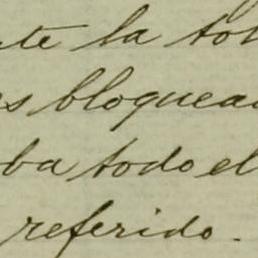 te la tot
s bloquea
ba todo el
referido.